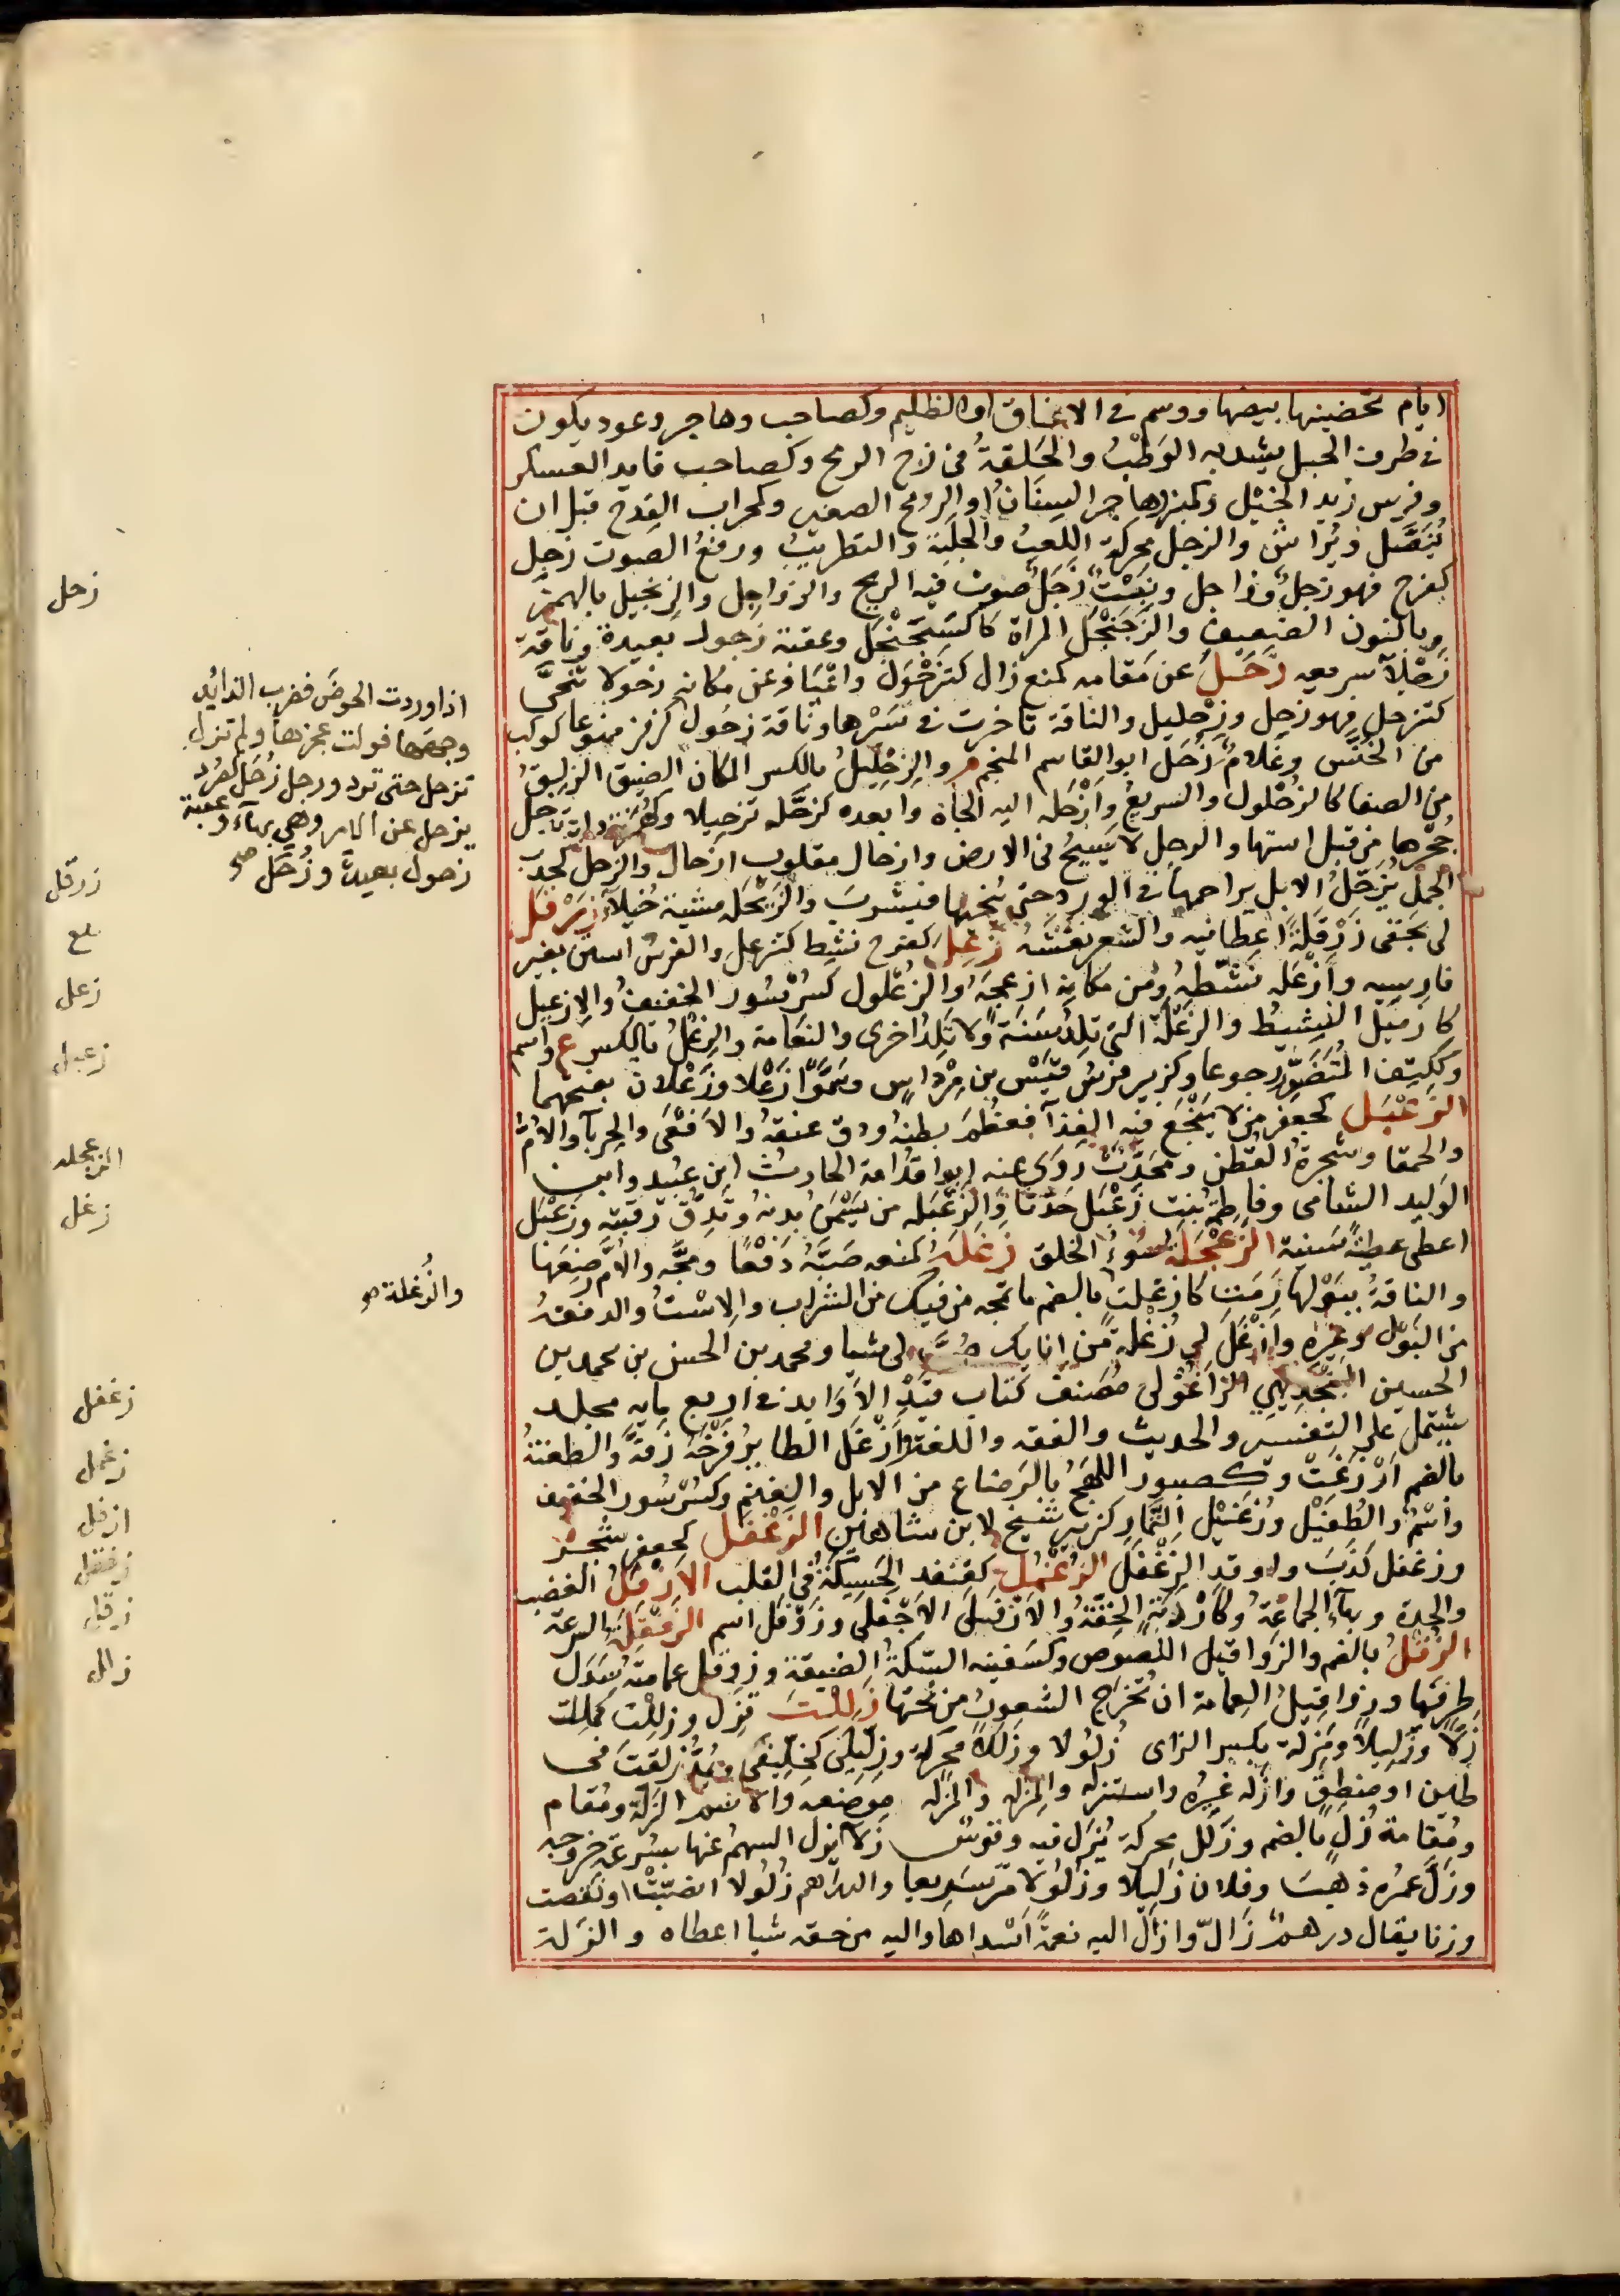 ايام تحضينها بيضها ووسم فى الاعناق او الظليم وكصاحب وهاجر وعود يكون
فى طرف الحبل يشد به الوَطْبُ والحَلقةُ فى زج الرمح وكصاحب قايد العسكر
وفرس زيد الخَيْل وكمنبر السِنَانُ او الرمح الصغير وكمحراب القِدح قبل ان
يُنَصَّل ويُراش والزجل محركة اللَعِبُ والجلَبة والتطريبُ ورفعُ الصوت زجل
كفرح فهو زجلٌ وزاجل ونبتٌ زَجِلٌ صوت فيه الريح والزواجل والزنجيل بالهمز
وبالنون الضعيف والزَجَنْجَل المرآة كالسَجَنْجَل وعقبة زَجول بعيدة وناقة
زَجْلاَ سريعه زَحَلَ عن مَقامه كمنع زال كتزَحْوَلَ واعْيَا وعن مكانه زحولا تنحَّى
كتزحل فهو زحل وزِحْليل والناقة تاخرت فى سَيْرها وناقة زحُول كزفر ممنوعا كوكب
من الخُنّس وغلامُ زُحَل ابو القاسم المنجم والزِحْلِيلُ بالكسر المكان الضيق الزلِقُ
من الصفا كالزُحْلول والسريعُ وازْحَله اليه الجأه وابعده كزحَّله تزحيلا وكهُمَزة دابة تدخل
جُحْرها من قبل استها والرجل لا يَسِيحُ فى الارض وازحال مقلوب ازحال والزحل كخدب
الجملُ يُزَحِّلُ الابل يزاحمها فى الورد حتى يُنَحيها فيشربَ والزَيْحَله مشية خُيَلاَ زَرْقَلَ
لى بحَقى زَرْقَلةً اعطانيه والشعر نفَشَهُ زَعِلَ كفرح نشِط كتزعل والفرسُ استن بغير
فارسه وازْعَله نشَّطهُ ومن مكانه ازعجَهُ والزُعْلول كسُرْسُور الخفيفُ والإزعيل
كازميل النشِيطُ والزَعْلة التى تلدُ سَنَةً ولا تَلِدُ اخرى والنعَامة والزِعْلُ بالكسر ع واسم
وككتِف المُتَضَوِّر جوعا وكزبير فرسُ قَيْس بن مِرْدَاس وسَمَّوا زَعْلا وزَعْلان بفتحهما
الزَعْبَل كجعفر من لا يَنْجَع فيه الغِذآ فعظُمَ بطنهُ ودق عنقهُ والافْعَى والحِربآ والامُ
والحمقا وشجرةُ القطن ومُحَدِّث رَوَى عنه ابو قدامة الحارثُ ابن عبيد وابن
الوليد الشامى وفاطمةُ بنت زَعْبَل حَدَّثا والزَعْبَله من يَسْمَنُ بدنهُ وتَدِقُّ رقَبَته وزَعْبَل
اعطى عطيةً سَنية الزَعْجَلة سُوءُ الخلق زَغَلَه كمنعه صَبَّهُ دَفْعًا ومجَّه والامَّ رضِعَهَا
والناقةُ ببَوْلها رَمَت كازغلت بالضم ما تمجه من فيك من الشراب والاسْتُ والدفعةُ
من البَوْل وغيره وازْغَلَ لى زُغْلة من انايك صُبَّ لى شيا ومحمد بن الحسن بن محمد بن
الحسين الزاغولى مُصَنف كتاب قيدْ الاوَابد فى اربع مايه مجلد
يشتمل على التفسير والحديث والفقه واللغة وازْغَل الطايرُ فَرْخَهُ زقَّه والطعنةُ
بالضم اَرْزَغَتْ وكصبور اللَهِجُ بالرَضاع من الابل والغنم وكسُرْسُور الخفيف
واسْمٌ والطُفَيْل وزُغَيْل التمار كزبير شيخ لابن شاهين الزغْفَل كجعفر شجر
وزغفل كذَبَ واوقد الزَغْفَل الزُغْمُل كقنفد الحَسِيكَةُ فى القلب الازفَلُ الغضب
والحِدة وبهآ الجماعةُ وكازدَبة الخِفّةُ والازْفَلى الاجْفَلَى وزَوْفَل اسم الزَفْقَلَةُ السرعة
الزُقلُ بالضم والزَواقيل اللصوص وكسَفينه السِكةُ الضيقة وزوقل عمامتهُ سَدَل
طرفَيْها وزواقيلُ العِمامة ان تُخرَج الشعورُ من تحتها زَلَلْتَ تزِل وزلِلْت كملِلت
زلاّ وزَليلا ومَزلة بكسر الزاى زُلولا وزَلَلاً محركة وزِلِّيلى كخِلِّيفَى ويُمدّ زلقتَ فى
طين او منطِق وازله غيرُه واستزله والمزله والمَزلة موضعه والاسم الزَلة ومقام
ومُقامة زُل بالضم وزَلَل محركة يُزَل فيه وقوسٌ زَلآ يزل السهمُ عنها بسُرعة خروجه
وزَلَّ عُمره ذهبَ وفلان زَليلا وزُلُولا مرّ سَرِيعا والدراهم زُلُولا انصَبّت او نقصت
وزنا يقال درهم زَالّ وازلّ اليه نعمةً اَسْداها واليه من حقه شيا اعطاه والزَلة
اذا وردت الحوضَ فضرب الذائد
وجهَها فولت عجزها ولم تزل
تزحل حتى ترد ورجل زُحَل كصُرَد
يزحل عن الامر وهى بهآء وعقبة
زحول بعيدة وزُحَل صح
والزُغلة صح
زحل
زرقل
زعل
زعبل
الزعجله
زغل
زغفل
زغمل
ازفل
زفقل
زقل
زلل